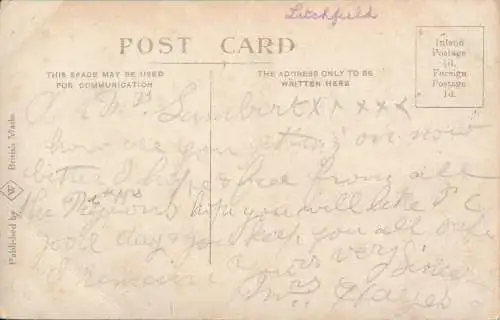 Litchfield
POST CARD
THIS SPACE MAY BE USED
FOR COMMUNICATION
THE ADDRESS ONLY TO BE
WRITTEN HERE
Inland
Postage
½d.
Foreign
Postage
1d.
Published by W British Made.
Mrs Lambert x x x x x
how are you getting on now
better I hope & free from all
the hope you will like P C
good day & you keep you all
I remain yours very Since
Mrs Hayes